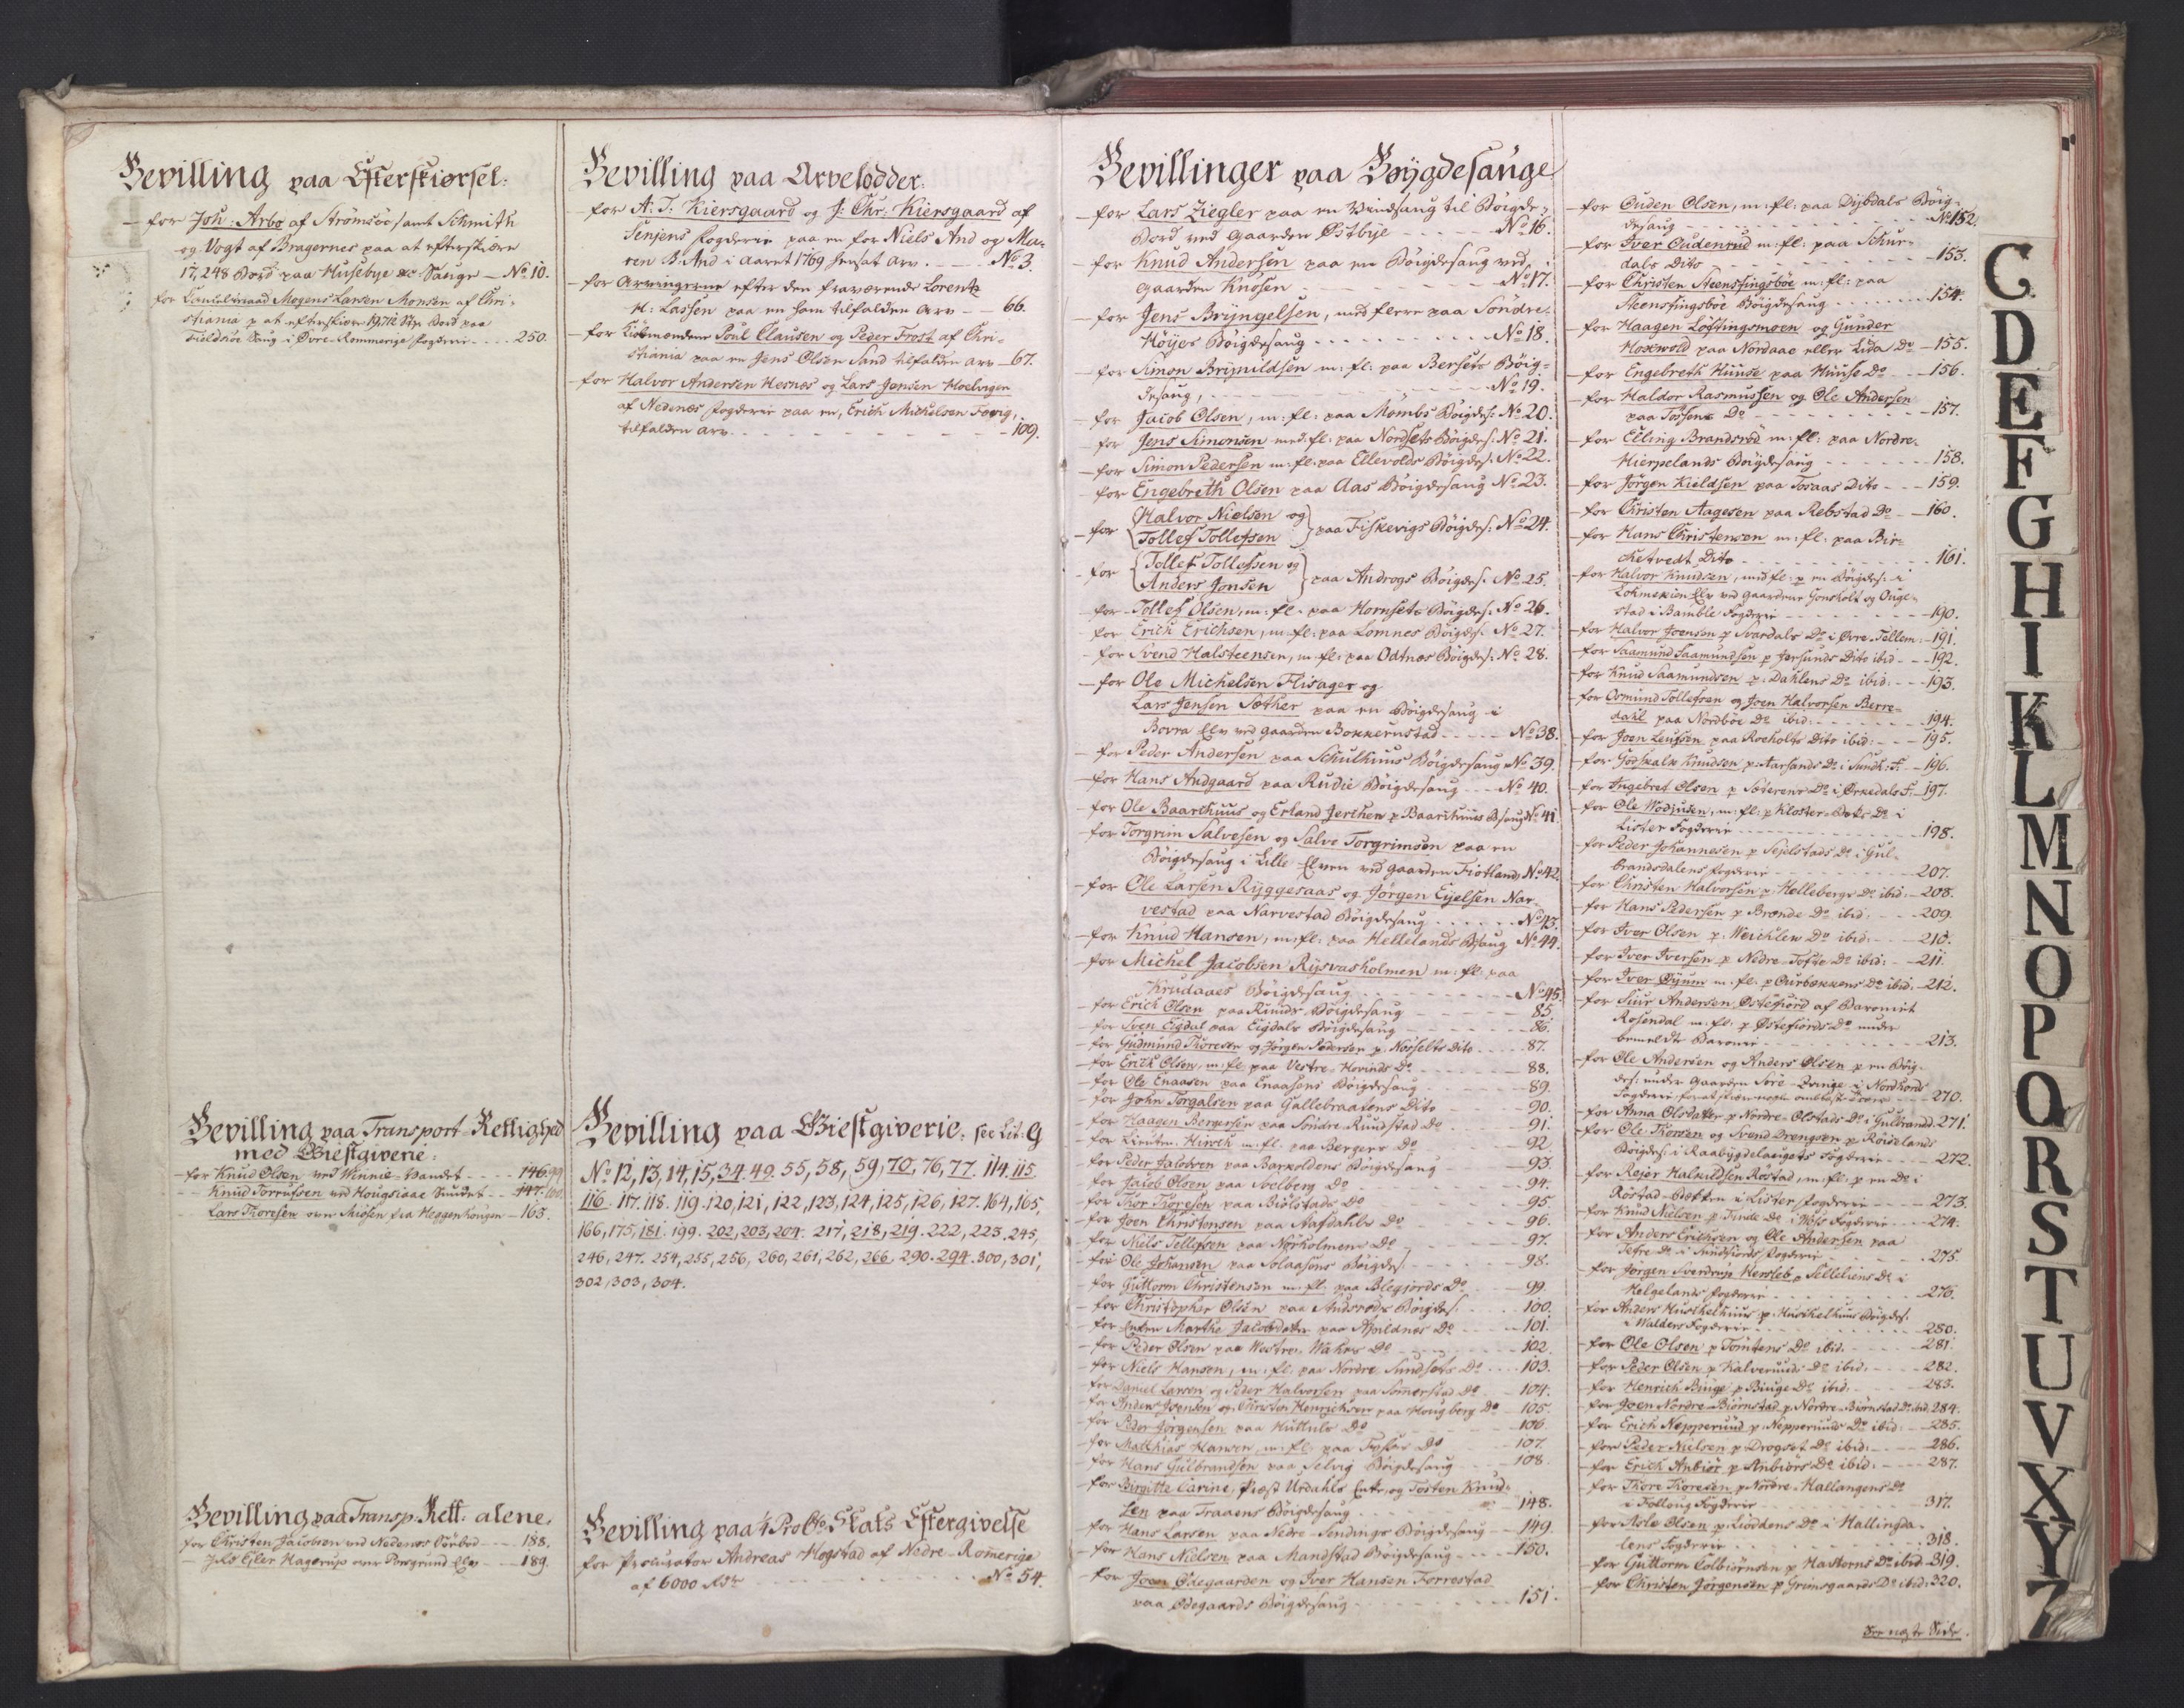 Bevilling paa Efterskiørsel:
- for Joh: Arbo af Strømsöe samt Schmith
og Vogt af Bragernes paa at efterskiære
17,248 Bord paa Husebye &c: Sauge - No 10.
for Cancelieraad Mogens Larsen Monsen af Chri-
stiania p at efterskiære 19,712 Bord paa
Saug i Övre-Rommerige Fogderie - - - - 250.
Bevilling paa Transport-Rettighed
med Giestgiverie:
- for Knud Olsen ved Winnie-Vandet - - - - 146.
- - Knud Torrufsen ved Hougsaae Sundet - - 147.
- - Lars Thoresen over Miösen fra Heggenhougen - 163.
Bevilling paa Transp: Rett: alene.
for Christen Jacobsen ved Nedenes Sörbod - - - 188.
- Jels Eyler Hagerup over Porsgrund Elv - - - 189.
Bevilling paa Arvelodder:
- for A: T: Kiersgaard og J: Chr: Kiersgaard af
Senjens Fogderie paa en for Niels And og Ma-
ren B: And i Aaret 1769 hensat Arv. - - - No 3.
- for Arvingerne efter den fraværende Lorentz
H: Lassen paa en ham tilfalden Arv - - 66.
- for Kiöbmændene Poul Clausen og Peder Frost af Chri-
stiania paa en Jens Olsen Sand tilfalden Arv - 67.
- for Halvor Andersen Hesnes og Lars Jensen Hoelvigen
af Nedenes Fogderie paa en, Erich Michelsen Fevig,
tilfalden Arv. - - - - - - - - - - - 109.
Bevilling paa Giestgiverie: see Lit: G
No 12, 13, 14, 15, 34. 49. 55, 58, 59, 70, 76, 77. 114. 115.
116. 117. 118. 119. 120, 121, 122, 123, 124, 125, 126, 127. 164, 165,
166, 175, 181. 199. 202, 203, 204. 217, 218, 219. 222, 223. 245,
246, 247. 254, 255, 256, 260, 261, 262, 266. 290. 294. 300, 301,
302, 303, 304.
Bevilling paa 1/4 Pro Cto: Skats Eftergivelse
for Procurator Andreas Hogstad af Nedre-Romerige
af 6000 Rdr - - - - - - - - No 54.
Bevillinger paa Böygdesauge
- for Lars Ziegler paa en Vandsaug til Böigde-
Bord ved Gaarden Østbye - - - - - No 16.
- for Knud Andersen paa en Böigdesaug ved
Gaarden Knosen - - - - - No 17.
- for Jens Bryngelsen, med flere paa Söndre-
Höyes Böigdesaug - - - - - No 18.
- for Simon Brynildsen m: fl: paa Bersets Böig-
desaug, - - - - - No 19.
for Jacob Olsen, m: fl: paa Mombs Böigdes: No 20.
- for Jens Simonsen med: fl: paa Nordsets Böigdes: No 21.
- for Simon Pedersen m: fl: paa Ellevolds Böigdes: No 22.
- for Engebreth Olsen paa Aas Böigdesaug No 23.
- for Halvor Nielsen og
Tollef Tollefsen paa Fiskevigs Böigdes: No 24.
- for Tollef Tollefsen og
Anders Jonsen paa Androgs Böigdes: No 25.
- for Tollef Olsen, m: fl: paa Hornsets Böigdes: No 26.
for Erich Erichsen, m: fl: paa Lomnes Böigdes: No 27.
- for Svend Halsteensen, m: fl: paa Odtnes Böigdes: No 28.
- for Ole Michelsen Flisager og
Lars Jensen Sæther paa en Böigdesaug i
Bovra Elv ved Gaarden Bokkerustad - - - - No 38.
- for Peder Andersen paa Schulhuus Böigdesaug No 39.
- for Hans Andgaard paa Rudie Böigdesaug - - - No 40.
- for Ole Baarshuus og Erland Jerthen p Baarshuus Bsaug No 41.
- for Torgrim Salvesen og Salve Torgrimsen paa en
Böigdesaug i Lille Elven ved Gaarden Fiotland, No 42.
- for Ole Larsen Ryggesaas og Jörgen Eyelsen Nar-
vestad paa Narvestad Böigdesaug - - - - No 43.
- for Knud Hansen, m: fl: paa Hellelands Bsaug No 44.
- for Michel Jacobsen Rysvasholmen m: fl: paa
Krudaaes Böigdesaug - - - - No 45.
- for Erich Olsen paa Ruuds Böigdesaug - - - 85.
- for Sven Eigdal paa Eigdals Böigdesaug - - - 86.
- for Gudmund Thoresen og Jörgen Pedersen p. Nosselts Dito - - - 87.
- for Erich Olsen, m: fl: paa Vestre-Hovinds Do - - - 88.
- for Ole Enaasen paa Enaasens Böigdesaug - - - 89.
- for John Torgalsen paa Gallebraatens Dito - - - 90.
- for Haagen Bergersen paa Söndre Ruudstad Do - - - 91.
- for Lieutn: Hirsch m: fl: paa Bergers Do - - - 92.
- for Peder Jacobsen paa Barkoldens Böigdesaug - - - 93.
- for Jacob Olsen paa Soelberg Do - - - 94.
- for Thor Thoresen paa Biölstads Do - - - 95.
- for Joen Christensen paa Aafsdahls Do - - - 96.
- for Niels Tellefsen paa Norholmens Do - - - 97.
- for Ole Johansen paa Solaasens Böigdes: - - - 98.
- for Guttorm Christensen m: fl: paa Blegjords Do - - - 99.
- for Christopher Olsen paa Andsröds Böigdes: - - - 100.
- for Enken Marthe Jacobsdatter paa Apildnes Do - - - 101.
- for Peder Olsen paa Westre-Wakers Do - - - 102.
- for Niels Hansen, m: fl: paa Nordre Sundsets Do - - - 103.
for Daniel Larsen og Peder Halvorsen paa Somerstad Do - - - 104.
- for Anders Joensen og Christen Henrichsen paa Hougberg Do 105.
- for Peder Jörgensen paa Huttuls Do - - - 106.
- for Matthias Hansen, m: fl: paa Fosse Do - - - 107.
- for Hans Gulbrandsen paa Selvig Böigdesaug - - - 108.
for Birgitte Carine, Præst Urdahls Enke, og Tosten Knud-
sen paa Traaens Böigdesaug - - - 148.
- for Hans Larsen paa Nedre-Sendings Böigdesaug - - - 149.
- for Hans Nielsen paa Mandstad Böigdesaug - - - 150.
- for Joen Ødegaarden og Iver Hansen Forrestad
paa Ødegaards Böigdesaug - - - 151.
- for Ouden Olsen, m: fl: paa Dybdals Böig-
desaug - - - No 152.
- for Iver Oudenrud m: fl: paa Schur-
dals Dito - - - 153.
- for Christen Steensfingsböe m: fl: paa
Steensfingsböe Böigdesaug - - - 154.
- for Haagen Löftingsmoen og Gunder
Hoxewold paa Nordaae eller Lida Do - 155.
- for Engebreth Huuse paa Huuse Do - - - 156.
- for Haldor Rasmussen og Ole Andersen
paa Tossens Do - - - 157.
- for Elling Brandsröd m: fl: paa Nordre-
Hierpelands Böigdesaug - - - 158.
- for Jörgen Kieldsen paa Tosaas Dito - - - 159.
- for Christen Aagesen paa Rebstad Do - - 160.
- for Hans Christensen m: fl: paa Bir-
chetvedt Dito - - - 161.
- for Halvor Knudsen, med fl: p en Böigdes: i
Elv ved Gaardene Gonsholt og Onge-
stad i Bamble Fogderie - - - 190.
- for Halvor Joensen p Svardals Do i Øvre-Tellem: - 191.
- for Saamund Saamundsen p Jærsunds Dito ibid - - - 192.
- for Knud Saamundsen p: Dahlens Do ibid: - - - 193.
- for Osmund Tollefsen og Joen Halvorsen Berre-
dahl paa Nordböe Do ibid: - - - 194.
- for Joen Leufsen paa Roeholts Dito ibid: - - - 195.
- for Godskalk Knudsen p: Aarsands Do i Sundh: F. - 196.
- for Ingebret Olsen p Seterens Do i Orkedals F. 197.
- for Ole Wodjusen, m: fl: p Kloster-Bæks Do i
Lister Fogderie - - - 198.
- for Peder Johannesen p Sejelstads Do i Gul-
brandsdalens Fogderie - - - 207.
- for Christen Halvorsen p Hellebergs Do ibid: - 208.
- for Hans Pedersen p Brende Do ibid: - - - 209.
- for Iver Olsen p: Weichlew Do ibid: - - - 210.
- for Iver Iversen p Nedre-Tofte Do ibid: - - 211.
- for Iver Øyum m: fl: p Quirbækkens Do ibid: - 212.
- for Siur Andersen Østefiord af Baroniet
Rosendal m: fl: p Østefiords Do under
bemeldte Baronie - - - 213.
- for Ole Andersen og Anders Olsen p en Böig-
des: under Gaarden Sore-Qvinge i Nordhords
Fogderie - - - 270.
- for Anna Olsdatter p Nordre-Olstads Do i Gulbrandd: 271.
- for Ole Thorsen og Svend Drengsen p Röiselands
Böigdes: i Raabygdelaugets Fogderie - - - 272.
- for Rejer Halkildsen Röstad, m: fl: p en Do i
Röstad-Bækken i Lister Fogderie - - - 273.
- for Knud Nielsen p: Tinde Do i Woss Fogderie - - - 274.
- for Anders Erichsen og Ole Andersen paa
Tefre Do i Sundfiords Fogderie - - - 275.
- for Jörgen Sverdrup Hersleb p Selleliens Do i
Helgelands Fogderie - - - 276.
for Anders Huuskelhuus p: Huuskelhuus Böigdes:
i Walders Fogderie - - - 280.
- for Ole Olsen p Tömtens Do ibid: - - - 281.
- for Peder Olsen p Kalveruuds Do ibid: - - - 282.
- for Henrich Biuge p Biuge Do ibid: - - - 283.
- for Joen Nordre-Biörnstad p Nordre-Biörnstad Do ibid: 284.
- for Erich Nepperuud p: Nepperuuds Do ibid: - - 285.
- for Peder Nielsen p Drogset Do ibid: - - - 286.
- for Erich Anbiör p Anbiörs Do ibid: - - - 287.
- for Thore Thoresen p Nordre-Hallangens Do
i Folloug Fogderie - - - 317.
- for Asle Olsen p Lioddens Do i Hallingda-
lens Fogderie - - - 318.
- for Guttorm Colbiörnsen p Haftorns Do ibid: 319.
- for Christen Jörgensen p Grimsgaards Do ibid: 320.
See næste Side.
C
D
E
F
G
H
I
K
L
M
N
O
P
Q
R
S
T
U
V
X
Y
Z